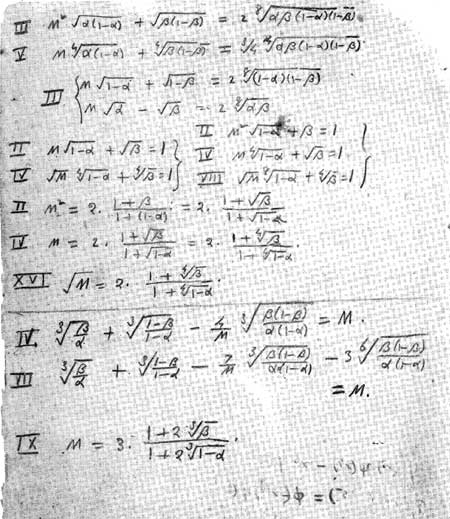 III m² √α(1-α) + √β(1-β) = 2 ⁸√αβ(1-α)(1-β)
V m ⁴√α(1-α) + ⁴√β(1-β) = ³√4 ²⁴√αβ(1-α)(1-β)
III { m√1-α + √1-β = 2 ⁸√(1-α)(1-β)
m√α - √β = 2 ⁸√αβ
II m² √1-α + β = 1
II m√1-α + √β = 1 IV m ⁴√1-α + √β = 1
IV √m ⁴√1-α + ⁴√β = 1 VIII √m ⁸√1-α + ⁴√β = 1
II m² = 2. (1+β)/(1+(1-α)) = 2. (1+√β)/(1+√1-α)
IV m = 2. (1+√β)/(1+√1-α) = 2. (1+⁴√β)/(1+⁴√1-α).
XVI √M = 2. (1+⁴√β)/(1+⁴√1-α).
IV. ³√β/α + ³√(1-β)/(1-α) - 4/M ³√β(1-β)/α(1-α) = M.
VII ³√β/α + ³√(1-β)/(1-α) - 7/M ³√β(1-β)/α(1-α) - 3 ⁶√β(1-β)/α(1-α)
= M.
IX M = 3. (1+2 ³√β)/(1+2 ³√1-α).